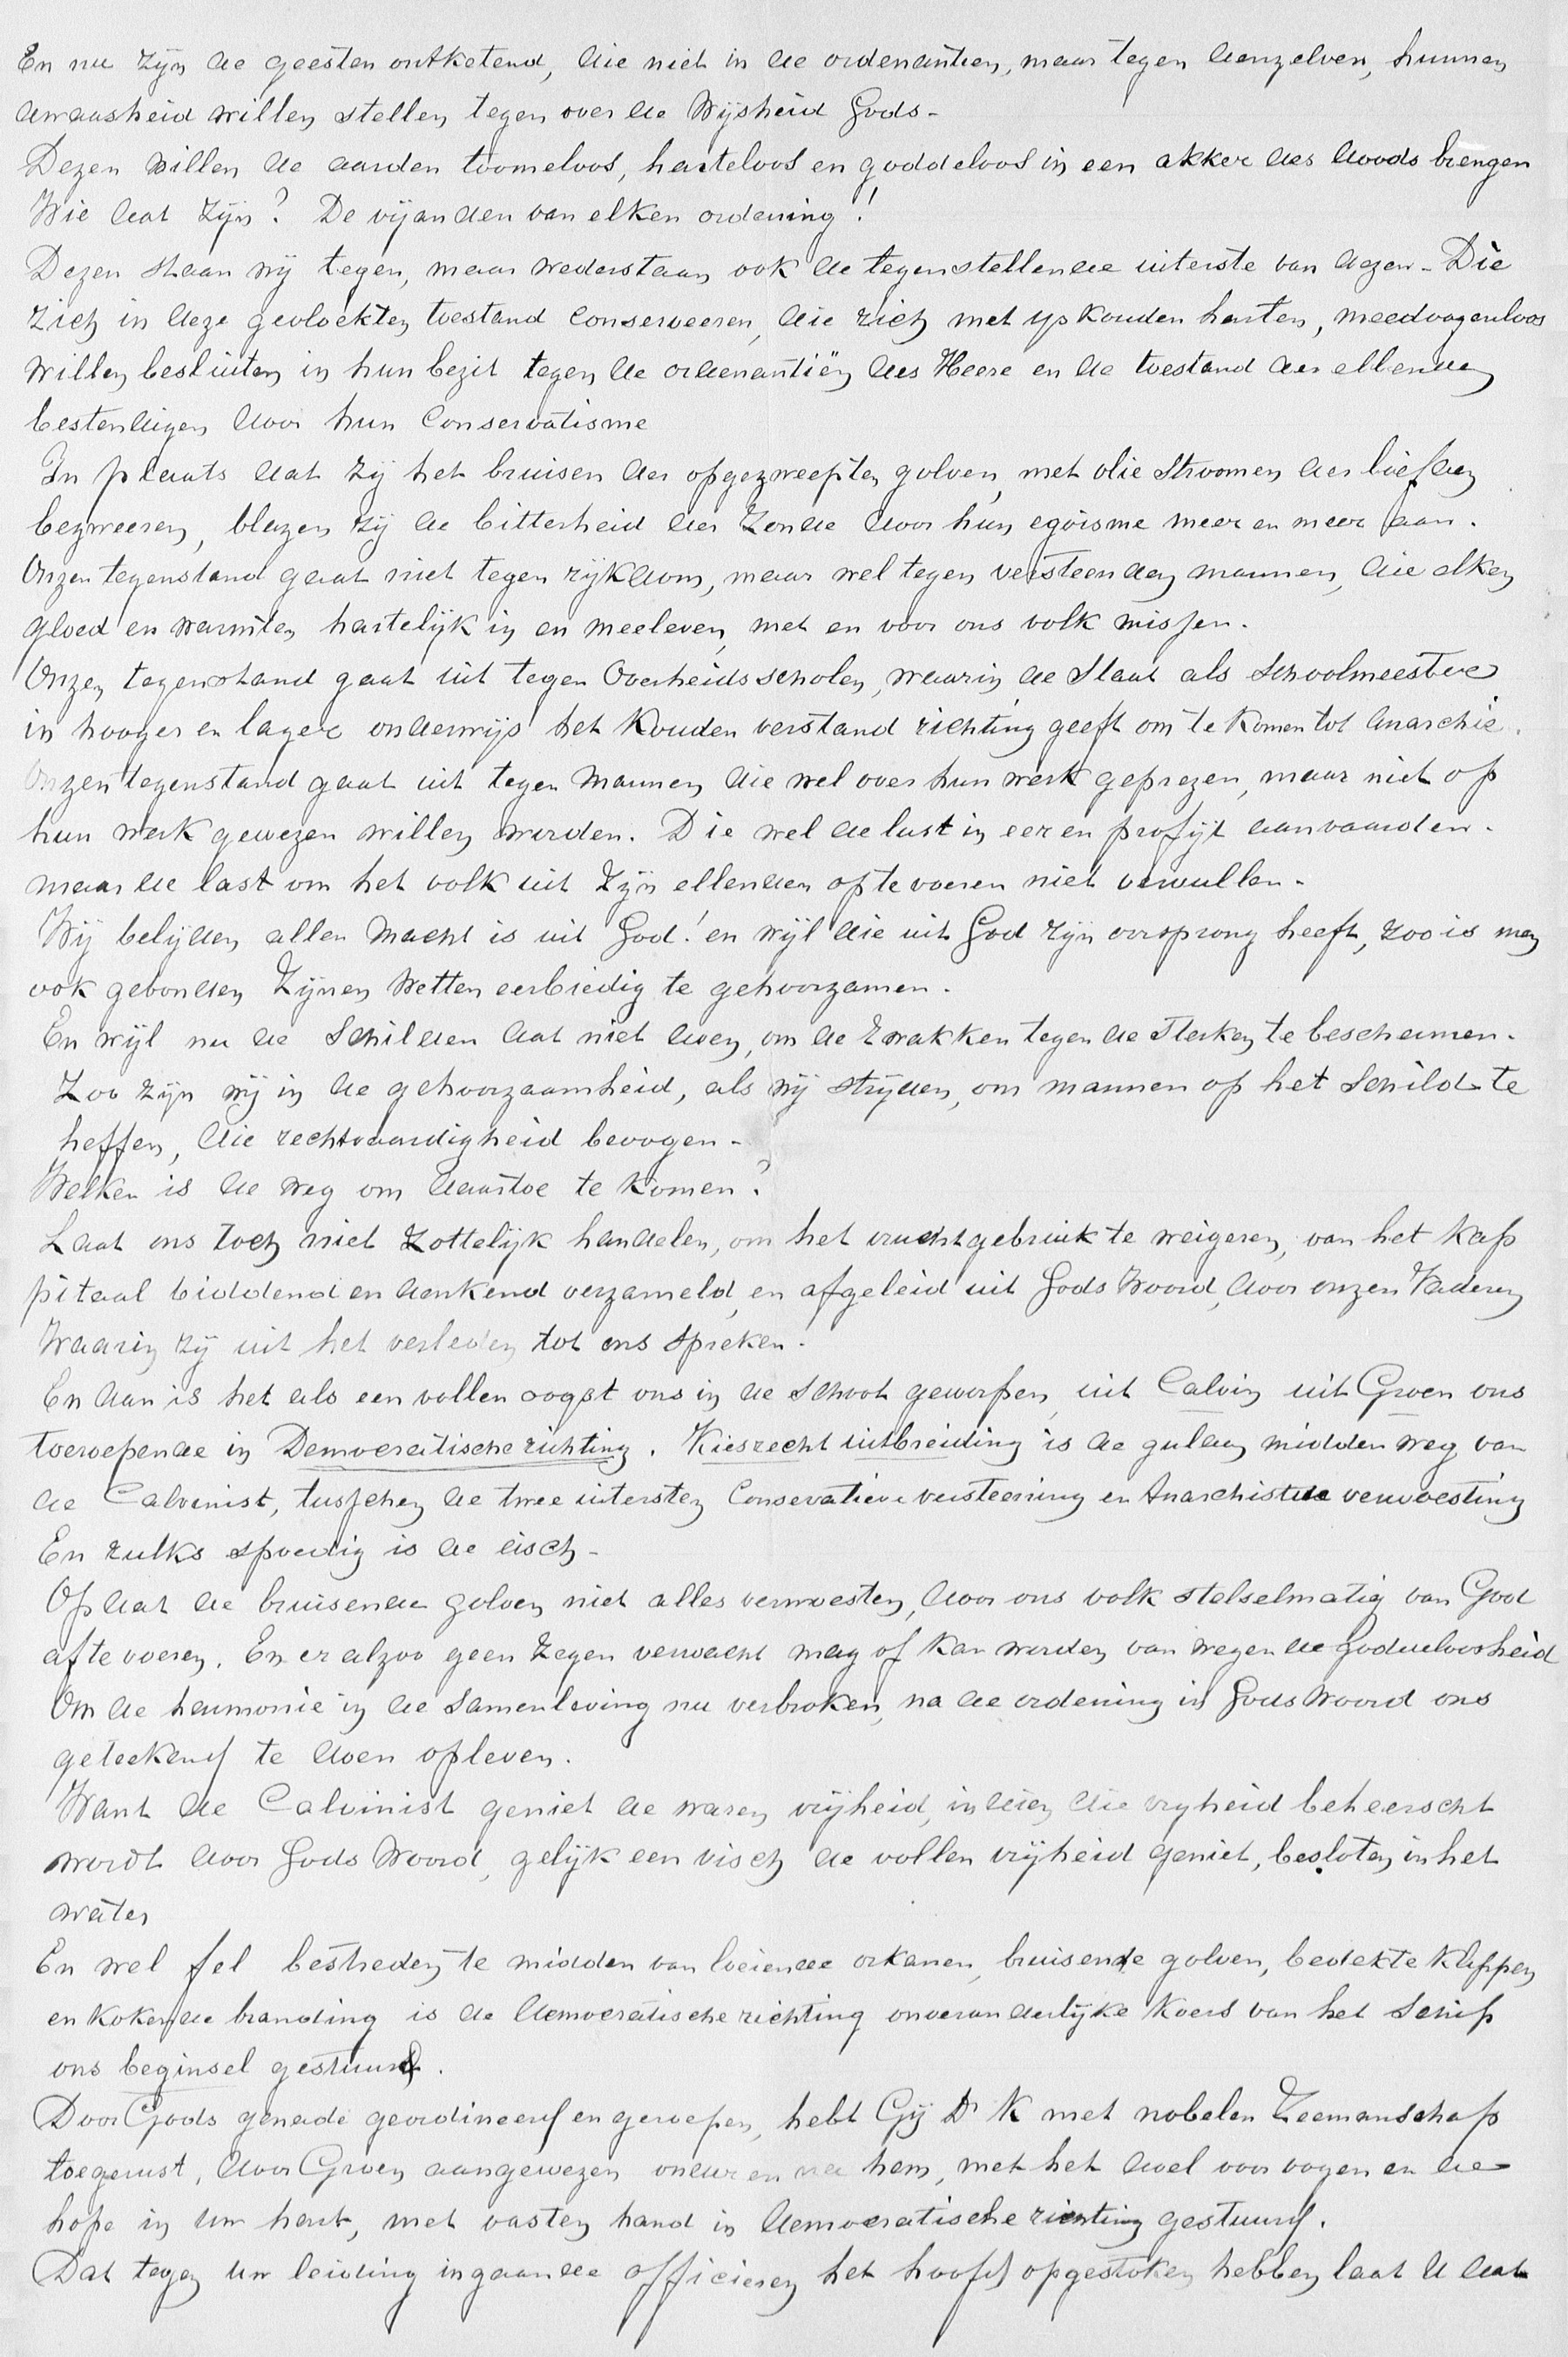 En nu zijn de geesten ontketend, die niet in de ordenantien, maar tegen denzelven, hunnen
dwaasheid willen stellen tegen over de Wijsheid Gods-
Dezen willen de aarden toomeloos, harteloos en goddeloos in een akker des doods brengen
Wie dat zijn? De vijanden van elken ordening!
Dezen staan wij tegen, maar wederstaan ook de tegenstellende uiterste van dezen- Die
zich in deze gevloekten toestand conserveeren, die zich met yskouden harten, meedoogenloos
willen besluiten in hun bezit tegen de ordenantiën des Heere en de toestand der ellenden
bestendigen door hun Conservatisme
In plaats dat zij het bruisen der opgezweepten golven, met olie stroomen der liefden
bezweeren, blazen zij de bitterheid der zonde door hun egoisme meer en meer aan.
Onzen tegenstand gaat niet tegen rijkdom, maar wel tegen versteenden mannen, die elken
gloed en warmten hartelijk in en meeleven, met en voor ons volk missen.
Onzen tegenstand gaat uit tegen Overheidsscholen, waarin de Staat als Schoolmeester
in hooger en lager onderwijs het kouden verstand richting geeft om te komen tot Anarchie.
Onzen tegenstand gaat uit tegen Mannen die wel over hun werk geprezen, maar niet op
hun werk gewezen willen worden. Die wel de lust in eer en profijt aanvaarden.
maar de last om het volk uit zijn ellenden op te voeren niet vervullen-
Wij belijden allen macht is uit God! en wijl die uit God zijn oorsprong heeft, zoo is men
ook gebonden Zijnen Wetten eerbiedig te gehoorzamen.
En wijl nu de Schilden dat niet doen, om de Zwakken tegen de Sterken te beschermen.
Zoo zijn wij in de gehoorzaamheid, als wij strijden, om mannen op het Schild te
heffen, die rechtvaardigheid beoogen-
Welken is de weg om daartoe te komen?
Laat ons toch niet Zottelijk handelen, om het vruchtgebruik te weigeren, van het kap
pitaal biddend en denkend verzameld, en afgeleid uit Gods Woord, door onzen Vaderen
Waarin zij uit het verleden tot ons spreken.
En dan is het als een vollen oogst ons in de schoot geworpen, uit Calvin uit Groen ons
toeroepende in Democratische richting. Kiesrecht uitbreiding is de gulden midden weg van
de Calvinist, tusschen de twee uitersten Conservatieve versteening en Anarchistise verwoesting
En zulks spoedig is de eisch-
Opdat de bruisende golven niet alles verwoesten, door ons volk stelselmatig van God
af te voeren. En er alzoo geen zegen verwacht mag of kan worden van wegen de Goddeloosheid
Om de harmonie in de Samenleving nu verbroken, na de ordening in Gods Woord ons
geteekend te doen opleven.
Want de Calvinist geniet de waren vrijheid, indien die vryheid beheerscht
wordt door Gods Woord, gelijk een visch de vollen vrijheid geniet, besloten in het
water
En wel fel bestreden te midden van loeiende orkanen, bruisende golven, bedekte klippen
en kokende branding is de democratische richting onveranderlijke koers van het Schip
ons beginsel gestuurd.
Door Gods genade geordineerd en geroepen, hebt Gij Dr K met nobelen Zeemanschap
toegerust, door Groen aangewezen onder en na hem, met het doel voor oogen en de
hope in Uw hart, met vasten hand in democratische richting gestuurd.
Dat tegen Uw leiding ingaande officieren het hoofd opgestoken hebben laat U dat